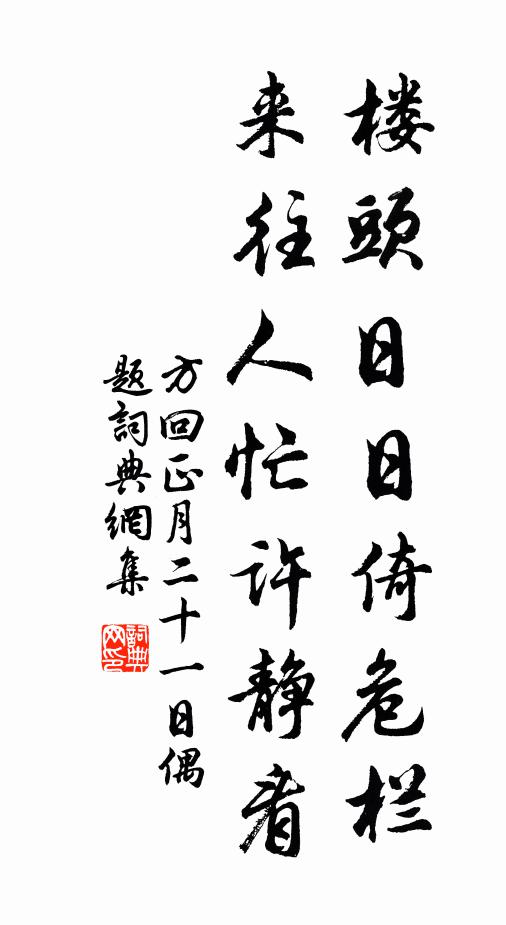 楼頭日日倚危栏
来往人忙许静看
方回正月二十一日偶
题詞典網集
詞典
网印